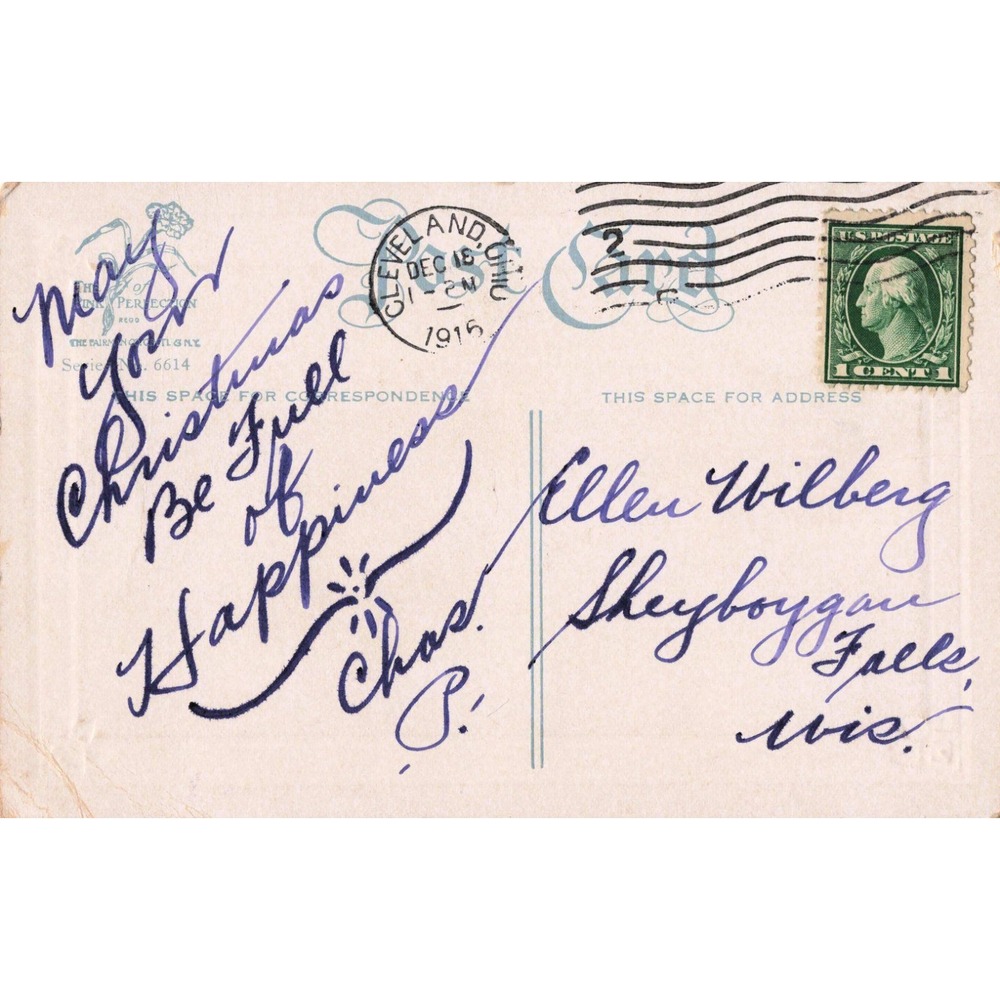 May
Your
Christmas
Be Full
of
Happiness
Chas.
P.
The
Pink of Perfection
REGD
THE FAIRMAN CO. CINTI. & N.Y.
Series No. 6614
Post Card
CLEVELAND, OHIO
DEC 18
1 - PM
1915
2
U.S. POSTAGE
1 CENT 1
THIS SPACE FOR CORRESPONDENCE
THIS SPACE FOR ADDRESS
Ellen Wilberg
Sheyboygan
Falls,
Wis.